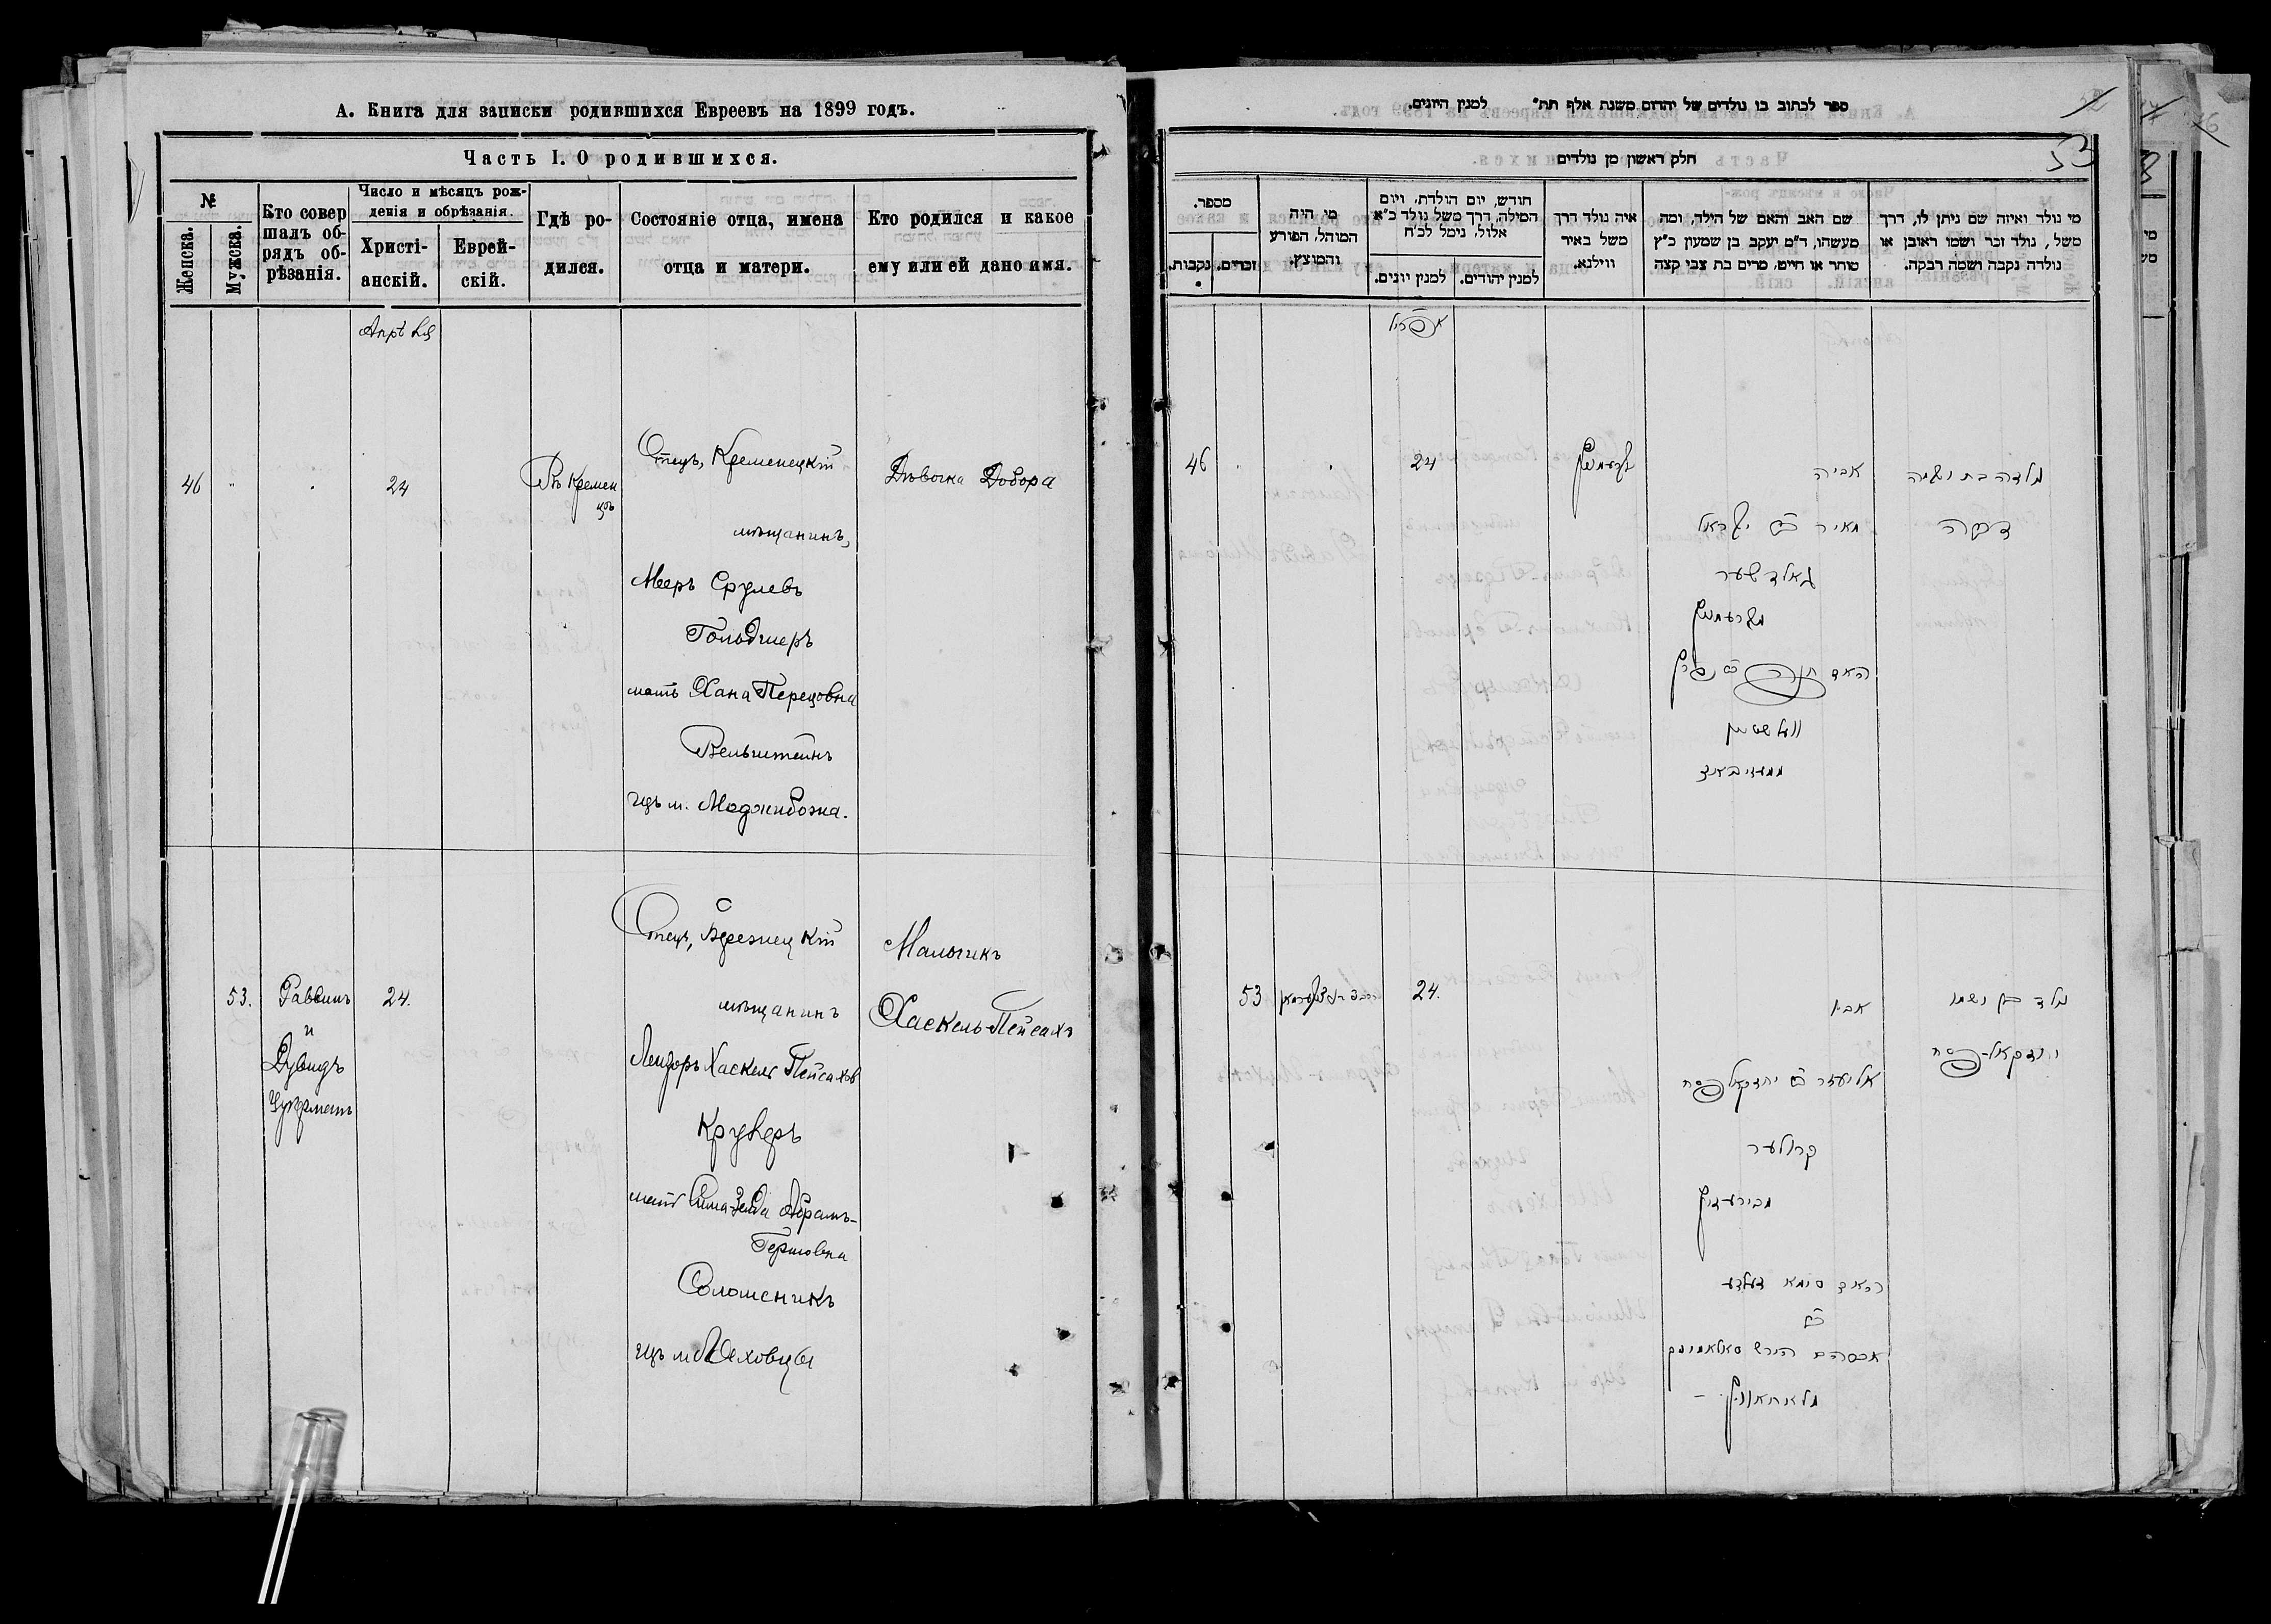 А. Книга для записки родившихся Евреевъ на 1899 годъ.
Часть I. О родившихся.
№
Женска.
Мужска.
Кто совер
шалъ об-
рядъ об-
рѣзанія.
Число и мѣсяцъ рож-
денія и обрѣзанія.
Христі-
анскій.
Еврей-
скій.
Гдѣ ро-
дился.
Состояніе отца, имена
отца и матери.
Кто родился и какое
ему или ей дано имя.
46
24
Въ Кремен
цѣ
Отецъ, Кременецкій
мѣщанинъ,
Мееръ Срулевъ
Гольдшеръ
мать Хана Перецовна
Вельштейнъ
изъ м. Меджибожа.
Дѣвочка Добора
53.
Раввинъ
и
Дувидъ
Цукерманъ
24.
Отецъ, Березнецкій
мѣщанинъ
Лейзоръ Хаскель Пейсахов
Круверъ
мать Сима-Зельда Абрамъ-
Гершовна
Соломеникъ
изъ м. Ляховцы
Мальчикъ
Хаскель-Пейсахъ
ספר לכתוב בו נולדים של יהדום משנת אלף תת״ למנין היונים.
חלק ראשון מן נולדים
53
מספר.
נקבות.
זכרים.
מי היה
המוהל, הפורע
והמוצץ.
חודש, יום הולדת, ויום
המילה, דרך משל נולד כ״א
אלול, נימל לכ״ח
למנין יונים.
למנין יהודים.
איה נולד דרך
משל באיר
ווילנא.
שם האב והאם של הילד, ומה
מעשהו, ד״מ יעקב בן שמעון כ״ץ
סוחר או חייט, מרים בת צבי קצה
מי נולד ואיזה שם ניתן לו, דרך
משל, נולד זכר ושמו ראובן או
נולדה נקבה ושמה רבקה.
אפריל
46
24
אביה
מאיר ב״ר ישראל
גאלדשער
מקרעמניץ
האם חנה ב״ר פרץ
וועלשטיין
ממעזיבאז
נולדה בת ושמה
דבורה
53
24.
אביו
אליעזר ב״ר יחזקאל פסח
קרוווער
האם סימא זעלדע
אברהם הירש סאלאמיניק
מלאחאוויץ
נולד בן ושמו
יחזקאל-פסח